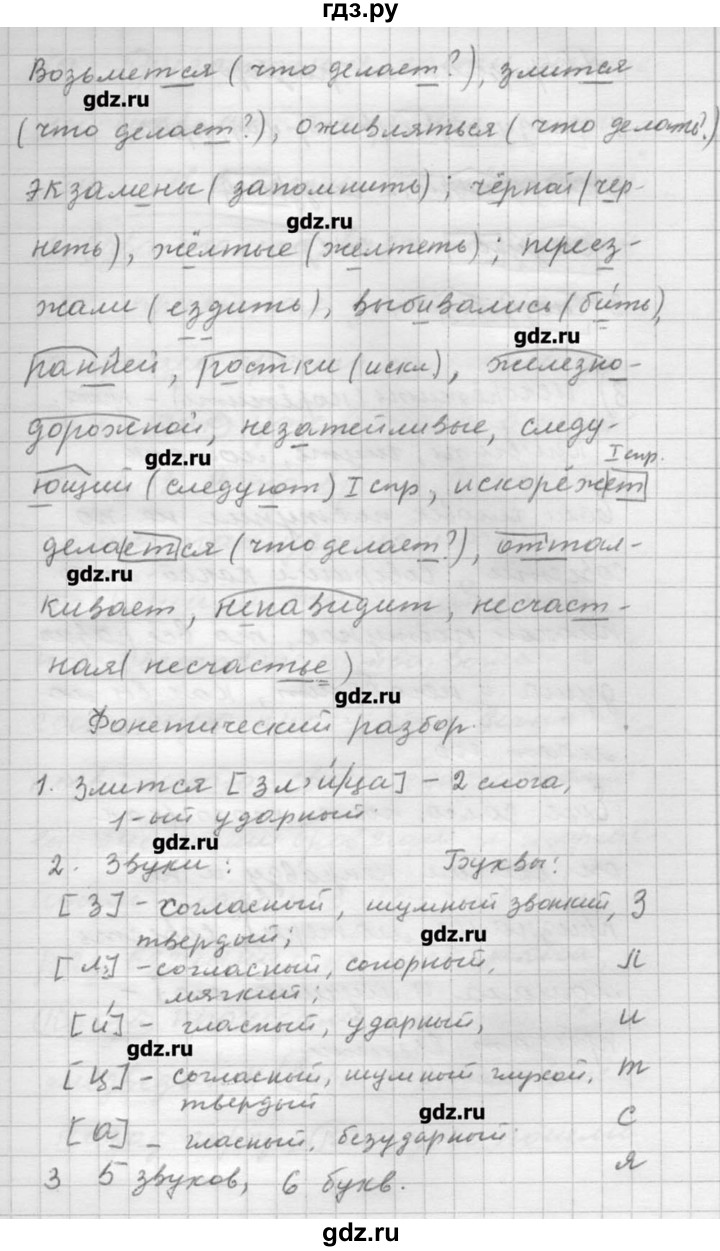 гдз.ру
Возьмется (что делает?), злится
gdz.ru
(что делает?), оживляться (что делать?)
экзамены (запомнить); чёрной (чер-
gdz.ru
неть), жёлтые (желтеть); переез-
жали (ездить), выбивались (би́ть),
gdz.ru
ранней, ростки (искл), железно-
дорожной, незатейливые, следу-
gdz.ru
I спр.
ющий (следуют) I спр, искорёжет
делается (что делает?), оттал-
gdz.ru
кивает, ненавидит, несчаст-
ная (несчастье)
gdz.ru
Фонетический разбор.
1. Злится [зл'и́/ца] - 2 слога,
1-ый ударный
gdz.ru
2. Звуки: Буквы:
[З] - согласный, шумный звонкий, З
твердый; gdz.ru
[л,] - согласный, сонорный, л
мягкий;
[и́] - гласный, ударный, и
gdz.ru
[ц] - согласный, шумный глухой, т
твердый gdz.ru
с
[а] - гласный, безударный
я
3 5 звуков, 6 букв.
gdz.ru